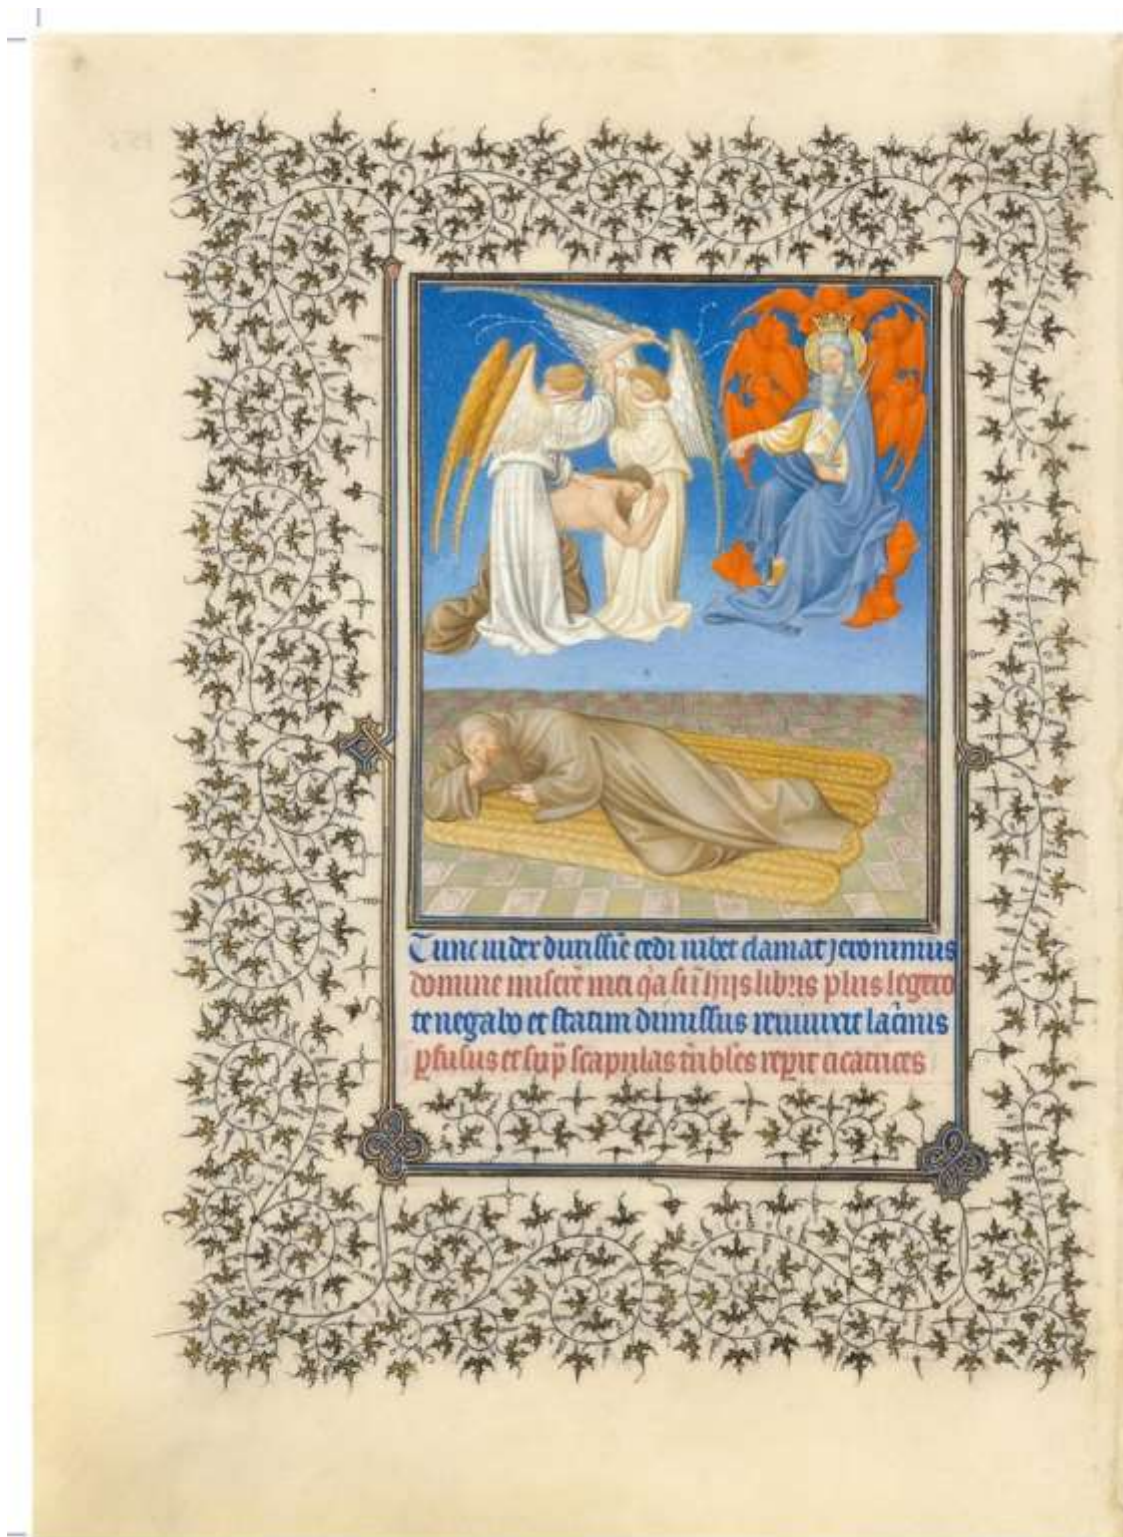 Tunc iudex durissīe cedi iubet clamat jeronimus
domine miserē mei q̄a si ī hijs libris plus legero
te negabo et statim dimissus reuiuixit lac̄mis
ꝑfusus et suꝑ scapulas t̄ribles reꝑit cicatrices